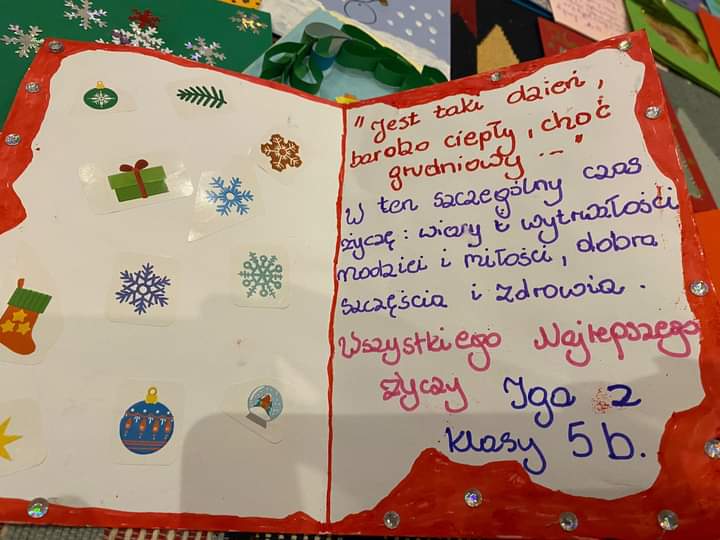 "Jest taki dzień,
bardzo ciepły, choć
grudniowy..."
W ten szczególny czas
życzę: wiary i wytrwałości
nadziei i miłości, dobra
szczęścia i zdrowia.
Wszystkiego Najlepszego
życzy Iga z
klasy 5b.